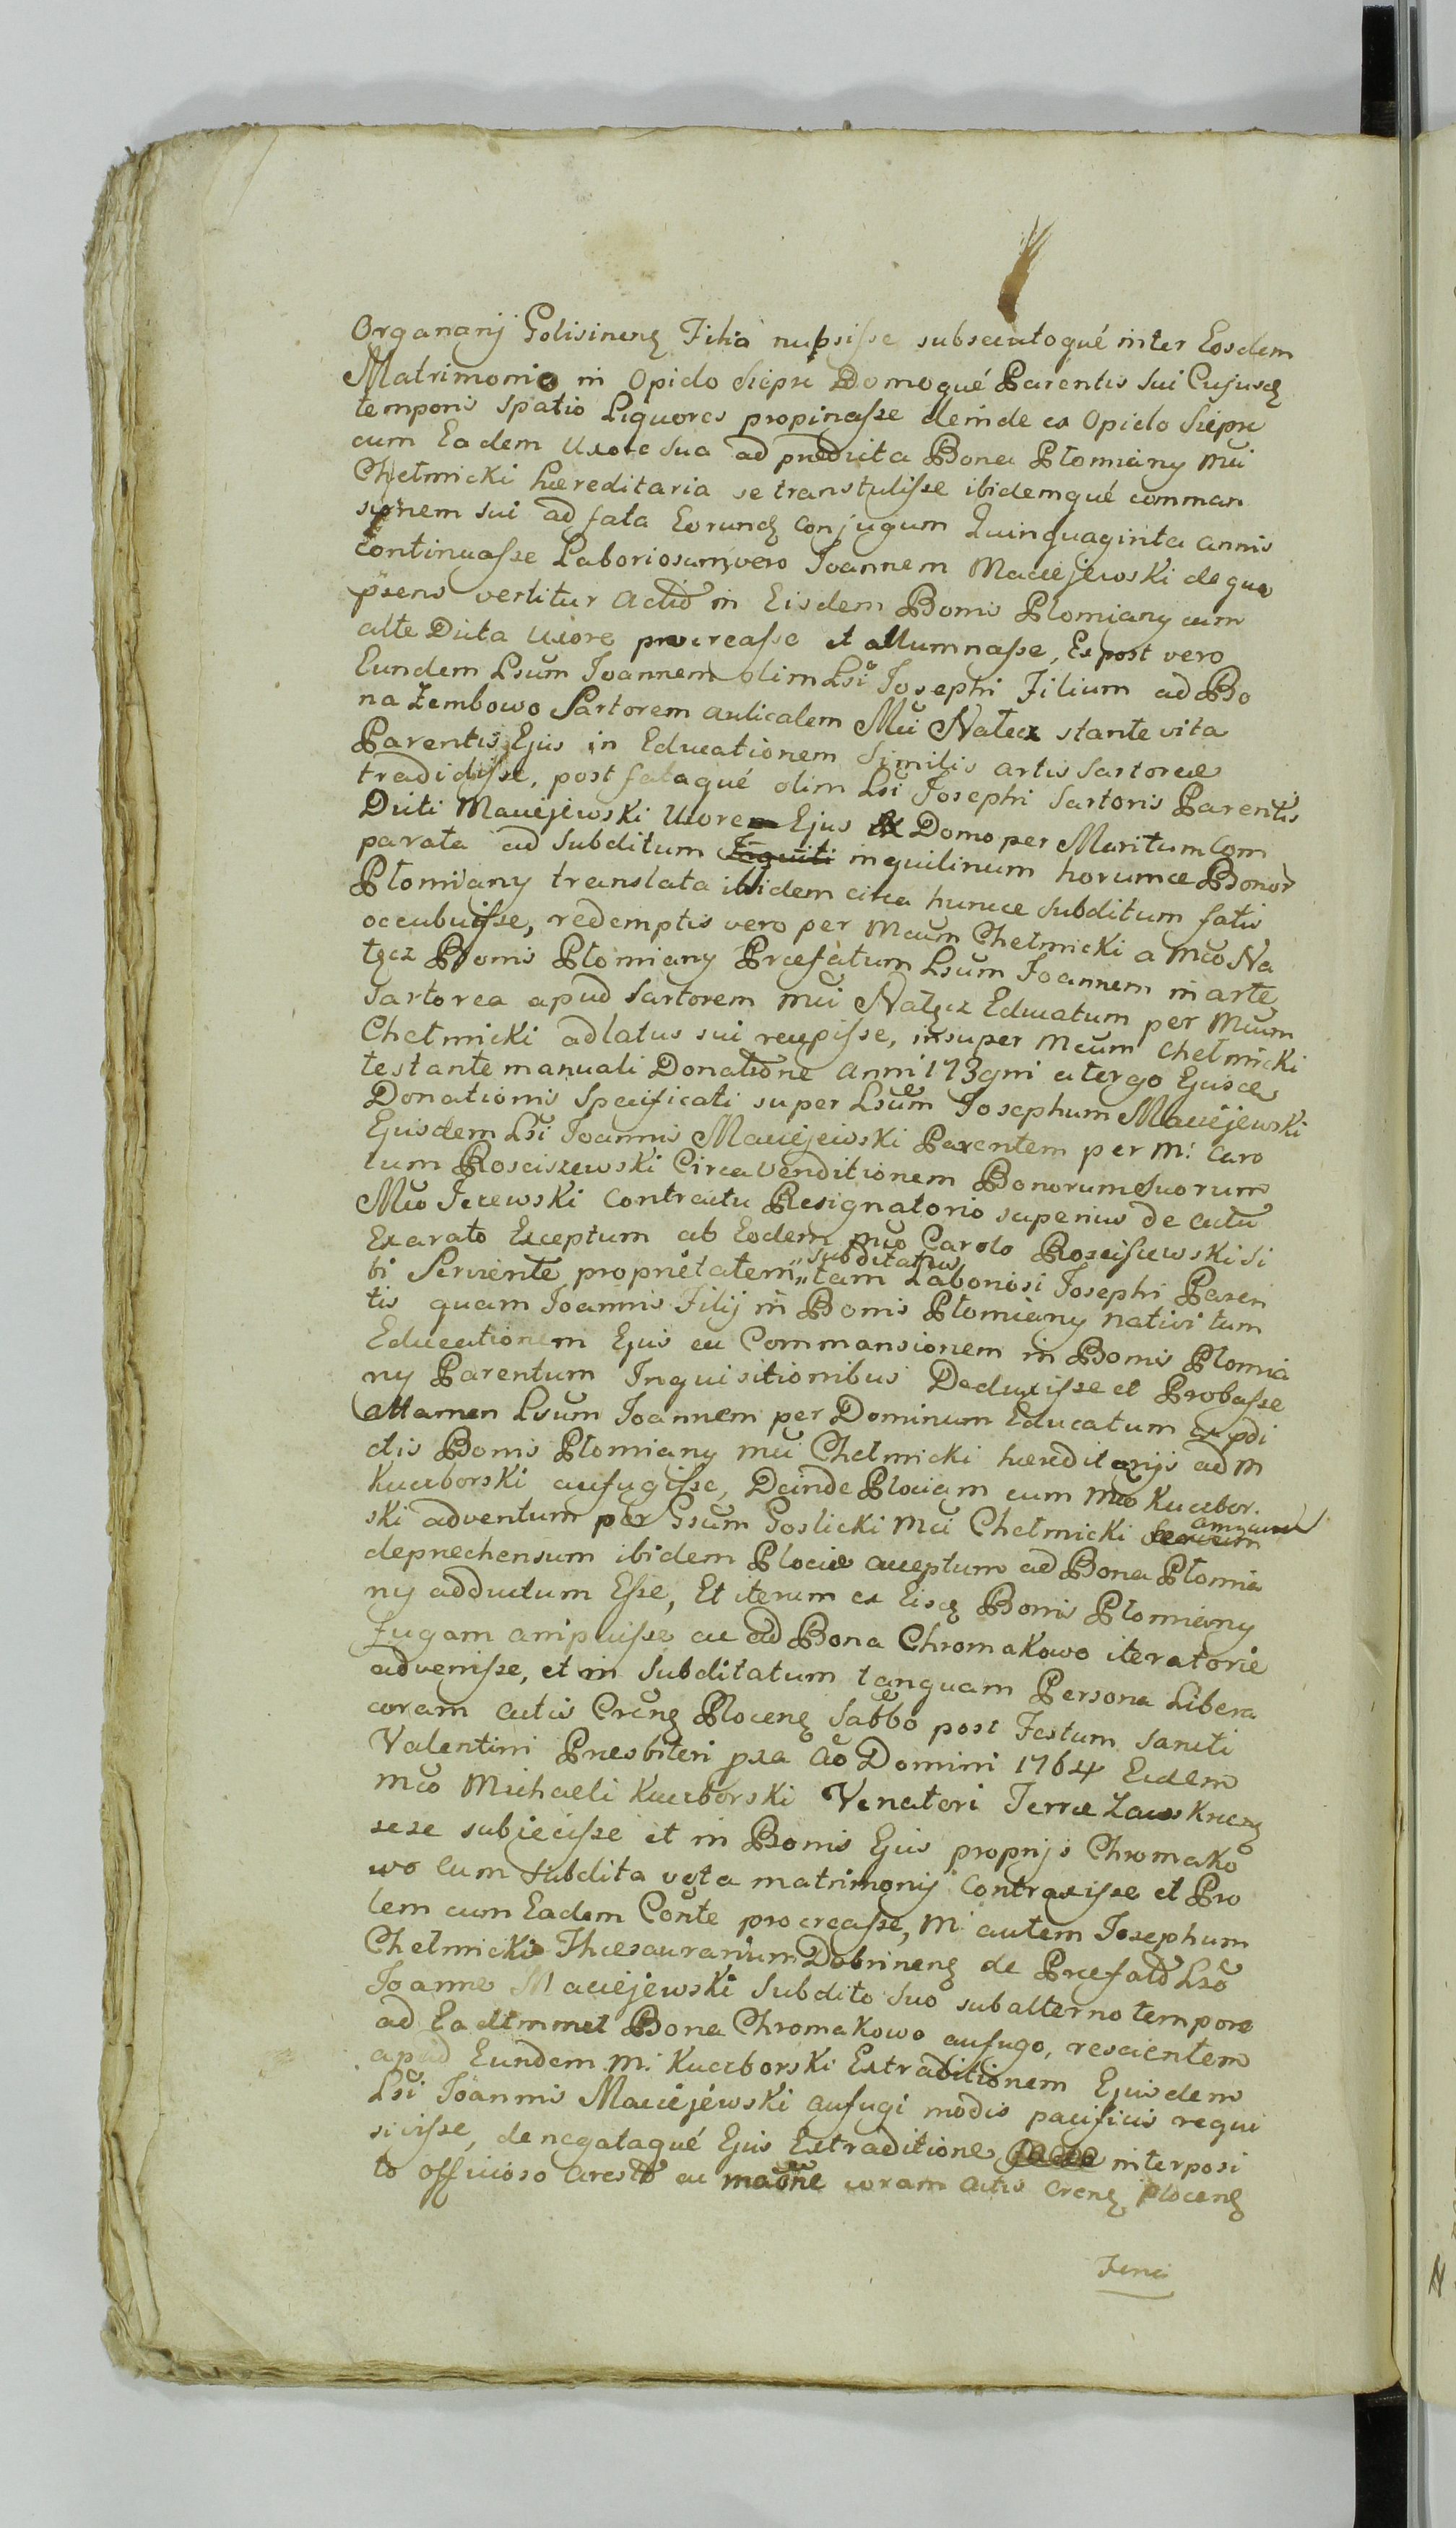 Organarij Golisinens Filia nupsisse subsecutoqué inter Eosdem
Matrimonio in Opido Siepn Domoqué Parentis sui Cujusq
temporis spatio Liquores propinasse deinde ex Opido Siepn
cum Eadem Uxore sua ad prædicta Bona Płomiany Mci
Chełmicki hæreditaria se transtulisse ibidemqué comman
sionem sui ad fata Eorund Conjugum Quinquaginta annis
continuasse Laboriosum vero Joannem Maciejewski de quo
pñens vertitur actio in Eisdem Bonis Płomiany cum
alte Dicta Uxore procreasse et allumnasse, Ex post vero
Eundem Lsum Joannem olim Lsi Josephi Filium ad Bo
na Zembowo Sartorem aulicalem Mci Natęcz stante vita
Parentis Ejus in Educationem Similis artis Sartoreæ
tradidisse, post fataqué olim Lsi Josephi Sartoris Parentis
Dicti Maciejewski Uxore Ejus Ex Domo per Maritum Com
parata ad Subditum Inquili inquilinum horumce Bonor
Płomiany translata ibidem circa hunce Subditum fatis
occubuisse, redemptis vero per Mcum Chełmicki a Mco Na
tęcz Bonis Płomiany Præfatum Lsum Joannem in arte
Sartorea apud Sartorem Mci Natęcz Educatum per Mcum
Chełmicki ad latus sui recepisse, insuper Mcum Chełmicki
testante manuali Donatione Anni 1739ni a tergo Ejusce
Donationis Specificati super Lsum Josephum Maciejewski
Ejusdem Lsi Joannis Maciejewski Parentem per M: Caro
lum Rosciszewski Circa Venditionem Bonorum Suorum
Mco Jezewski Contractu Resignatorio superius de actu
Exarato Exceptum ab Eodem Mco Carolo Rosciszewski Si
bi Serviente proprietatem subditatus tam Laboriosi Josephi Paren
tis quam Joannis Filij in Bonis Płomiany nativitum
Educationem Ejus ac Commansionem in Bonis Płomia
ny Parentum Inquisitionibus Deduxisse et Probasse
attamen Lsum Joannem per Dominum Educatum ex pdi
ctis Bonis Płomiany Mci Chełmicki hæreditarijs ad M
Kuczborski aufugisse, Deinde Plociam cum Mco Kuczbor
ski adventum per Gsum Goslicki Mci Chełmicki amicum
deprechensum ibidem Plociæ acceptum ad Bona Płomia
ny adductum Esse, Et iterum ex Eisq Bonis Płomiany
fugam aripuisse ac ad Bona Chromakowo iteratorie
advenisse, et in Subditatum tanquam Persona Libera
coram actis Crens Plocens Sabbo post Festum Sancti
Valentini Presbiteri pxa Ao Domini 1764 Eidem
Mco Michaeli Kuczborski Venatori Terræ Zawskrens
sese subjecisse et in Bonis Ejus proprijs Chromako
wo Cum Subdita vota matrimonij Contraxisse et Pro
lem cum Eadem Conte procreasse, M autem Josephum
Chełmicki Thæsaurarium Dobrinens de Præfato Lso
Joanne Maciejewski Subdito Suo subalterno tempore
ad Eademmet Bona Chromakowo aufugo, rescientem
apud Eundem M: Kuczborski Extraditionem Ejusdem
Lsi Joannis Maciejewski aufugi modis pacificis requi
sivisse, denegataqué Ejus Extraditione interposi
to officioso Aresto ac maõne coram actis Crens Plocens